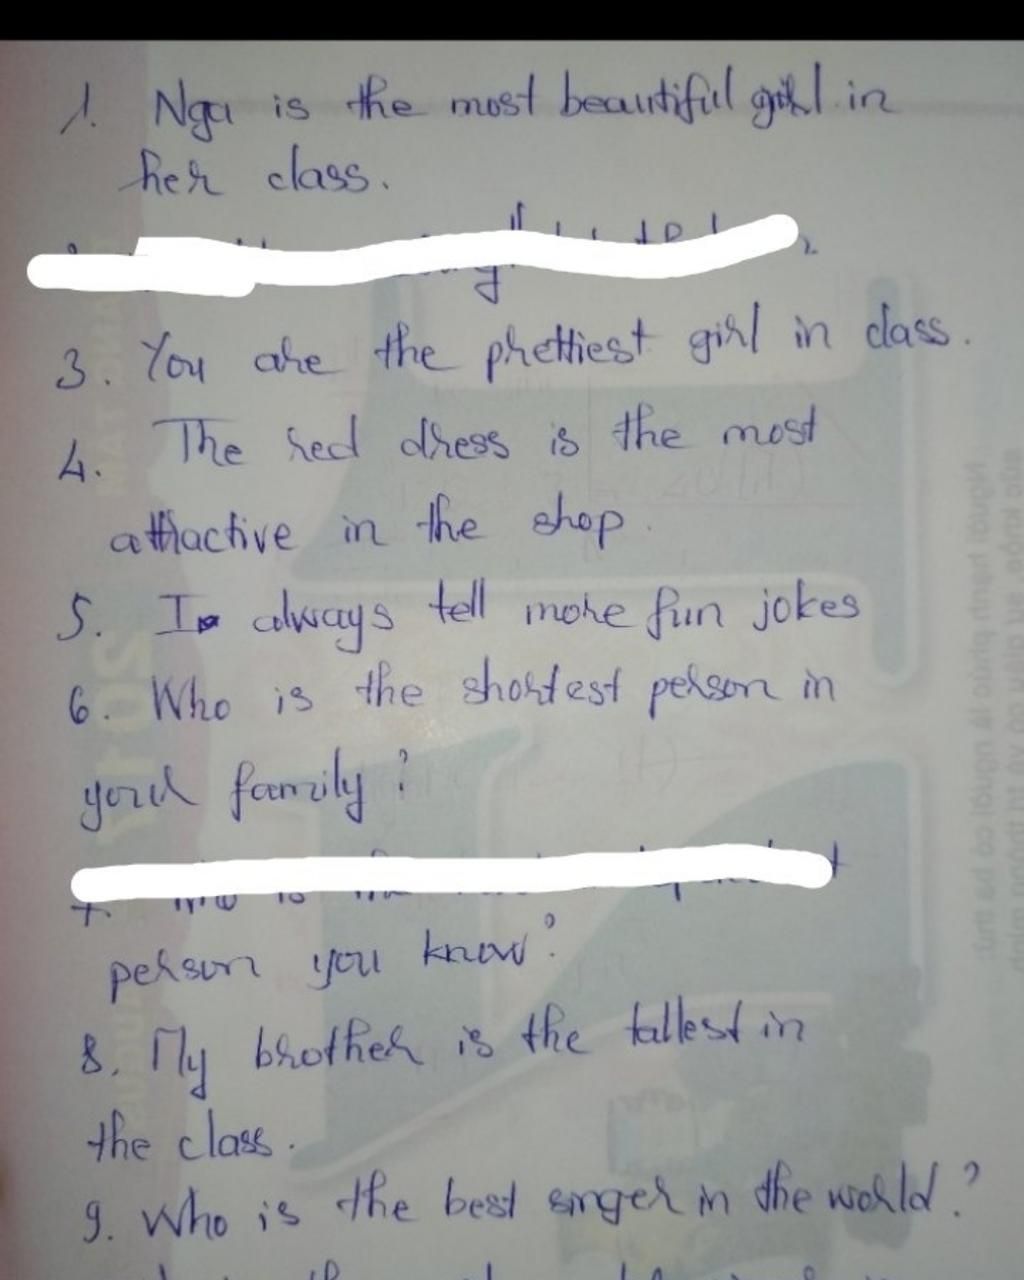 1. Nga is the most beautiful girl in
her class.
3. You are the prettiest girl in class.
4. The red dress is the most
attractive in the shop.
5. I always tell more fun jokes
6. Who is the shortest person in
your family?
7.
person you know?
8. My brother is the tallest in
the class.
9. Who is the best singer in the world?